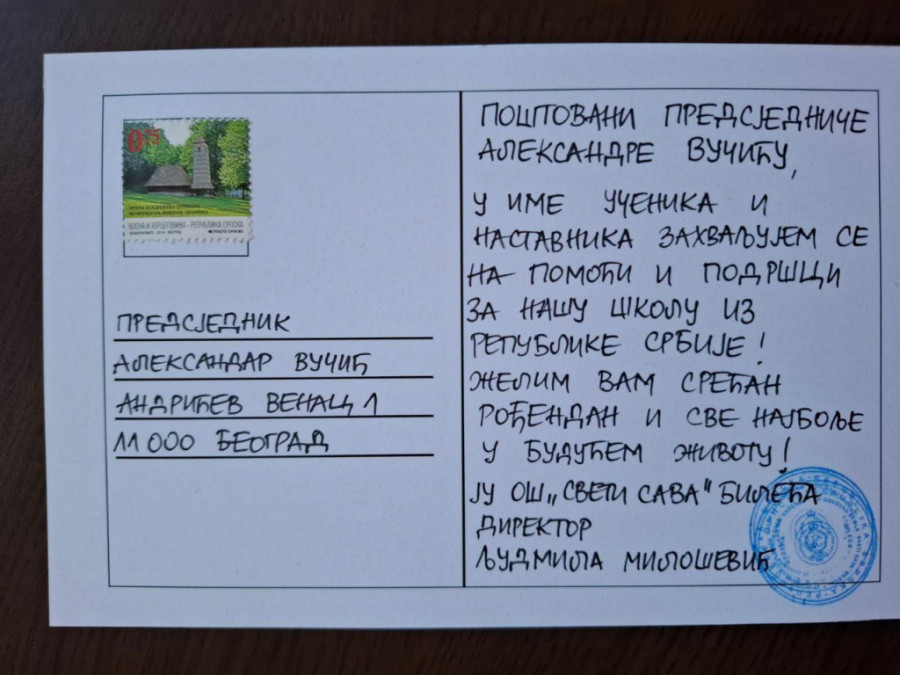 0.75
БОСНА И ХЕРЦЕГОВИНА - РЕПУБЛИКА СРПСКА
ПРЕДСЈЕДНИК
АЛЕКСАНДАР ВУЧИЋ
АНДРИЋЕВ ВЕНАЦ 1
11000 БЕОГРАД
ПОШТОВАНИ ПРЕДСЈЕДНИЧЕ
АЛЕКСАНДРЕ ВУЧИЋУ,
У ИМЕ УЧЕНИКА И
НАСТАВНИКА ЗАХВАЉУЈЕМ СЕ
НА ПОМОЋИ И ПОДРШЦИ
ЗА НАШУ ШКОЛУ ИЗ
РЕПУБЛИКЕ СРБИЈЕ!
ЖЕЛИМ ВАМ СРЕЋАН
РОЂЕНДАН И СВЕ НАЈБОЉЕ
У БУДУЋЕМ ЖИВОТУ!
ЈУ ОШ „СВЕТИ САВА" БИЛЕЋА
ДИРЕКТОР
ЉУДМИЛА МИЛОШЕВИЋ